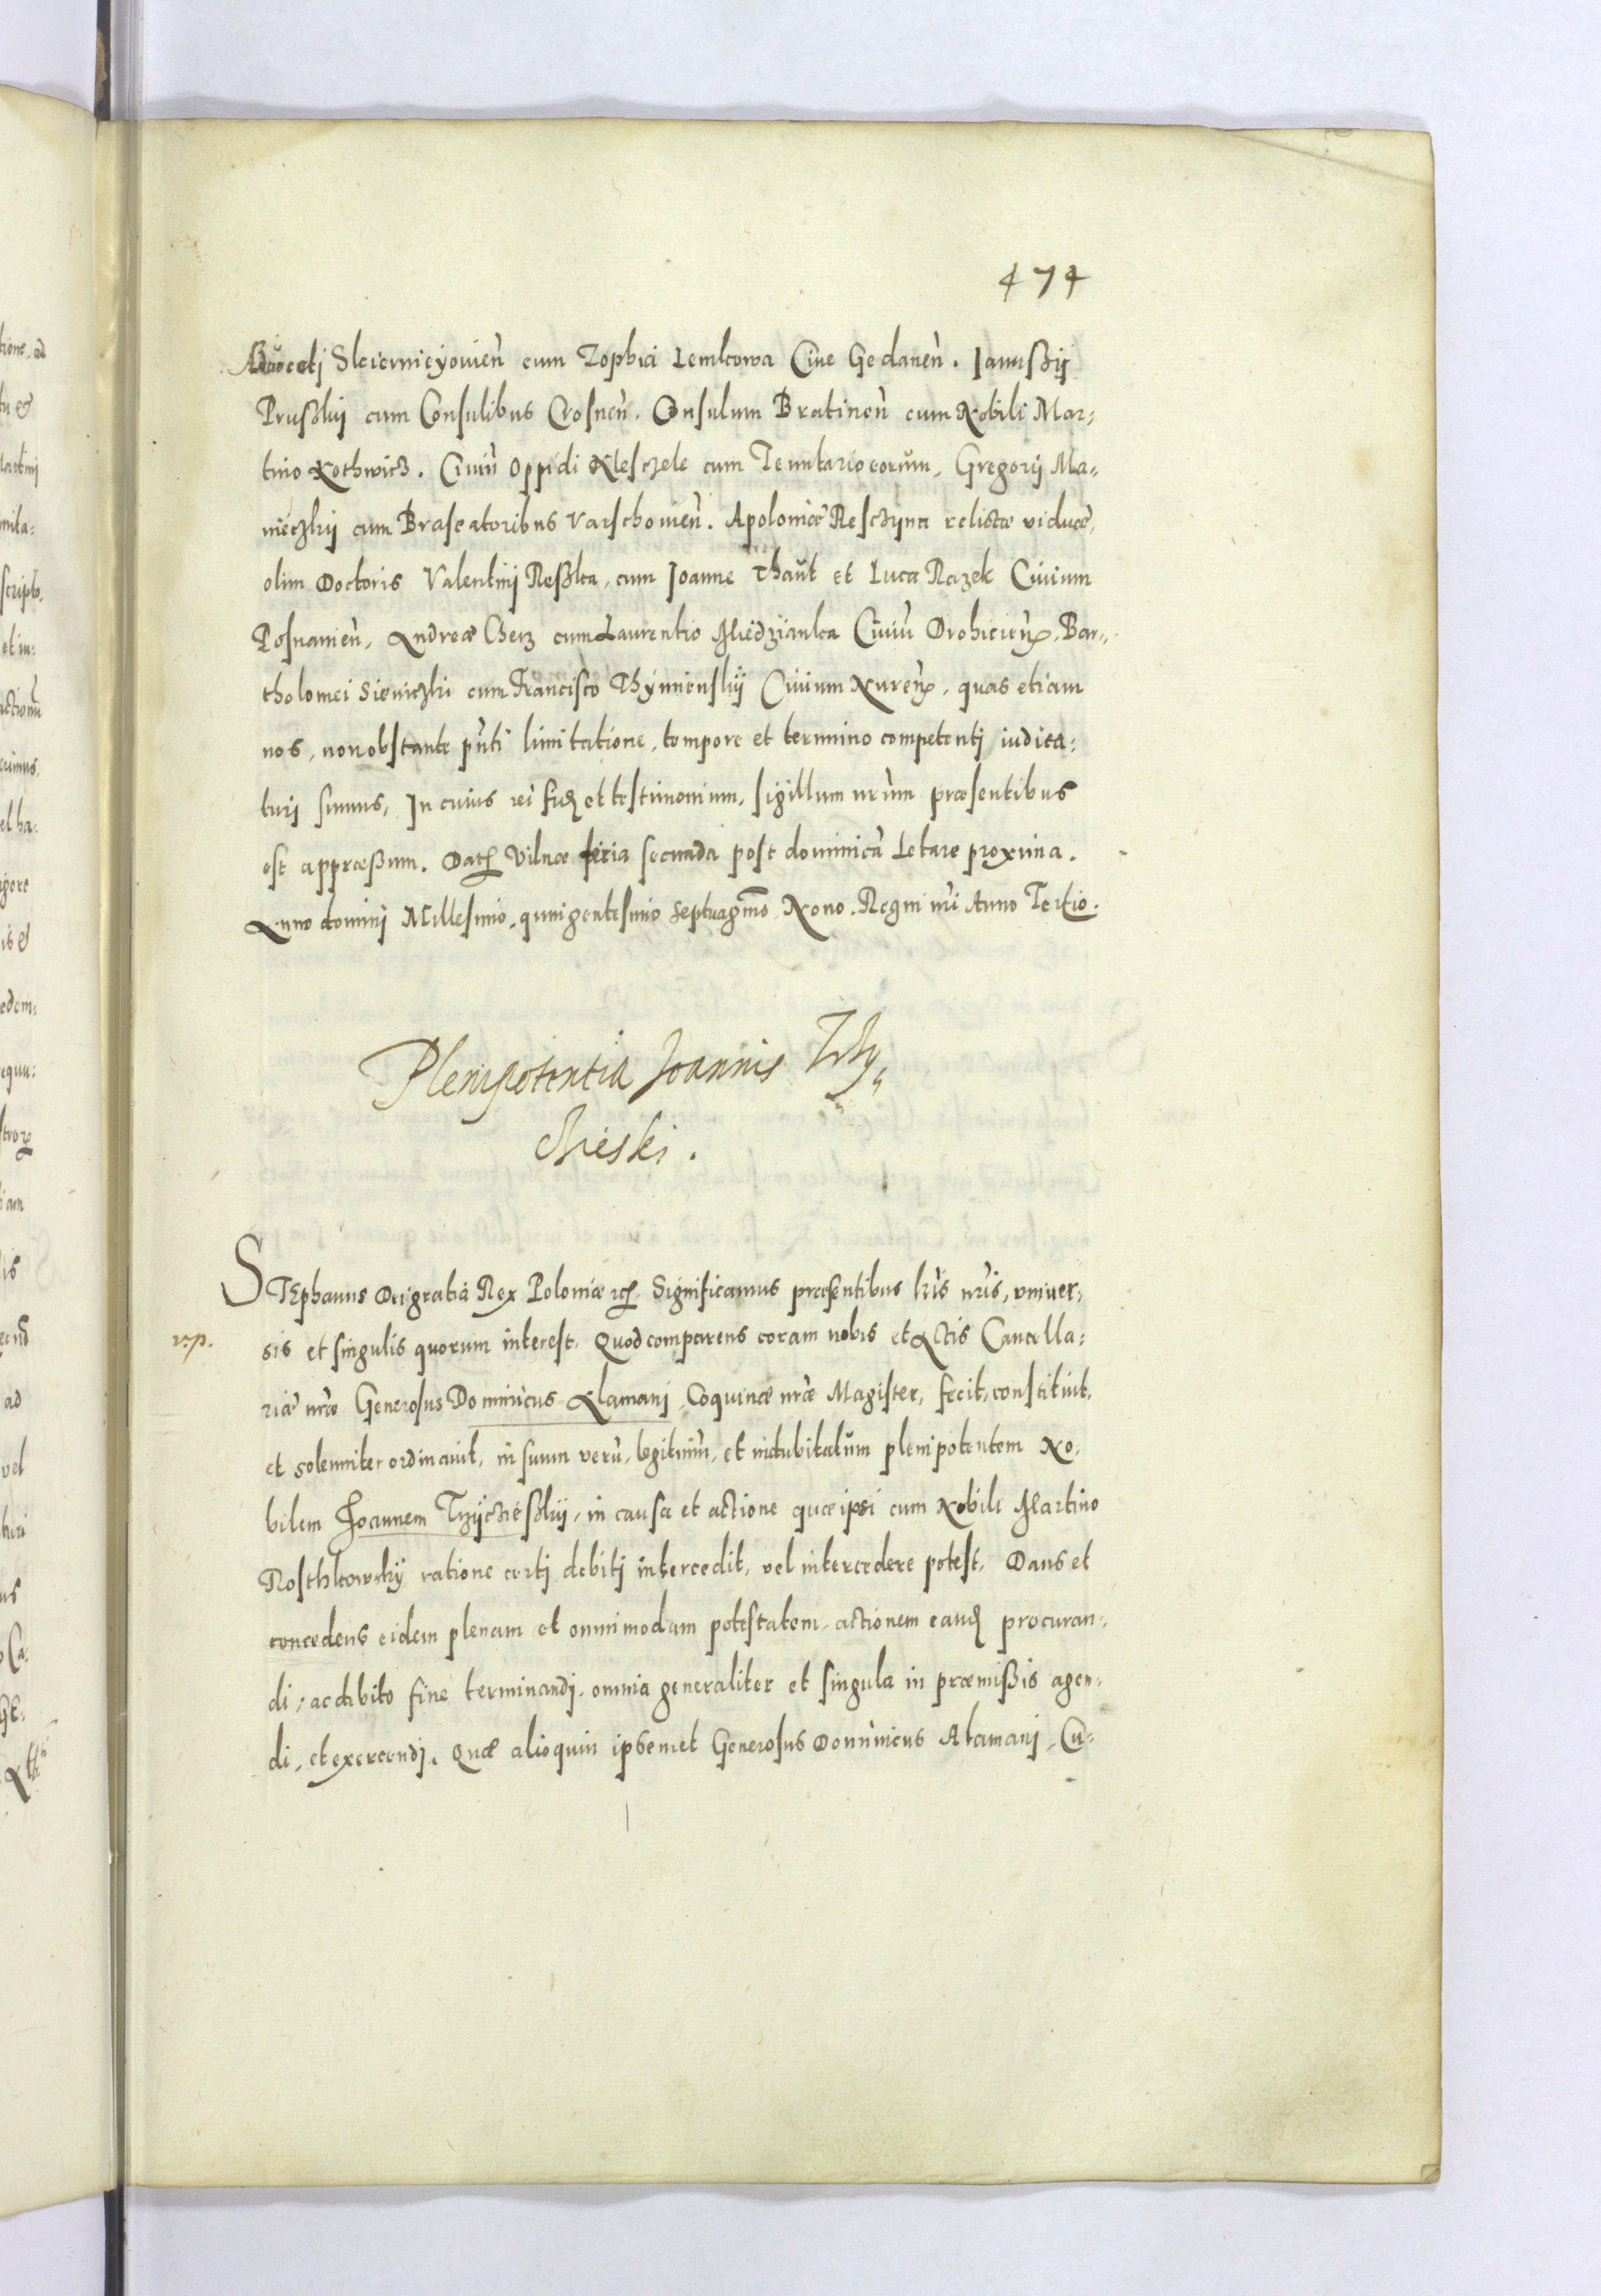 474
Aduocati Skierniejouien̄ cum Zophia Lemkowa Ciue Gedanen̄. Janußÿ
Prußkij cum Consulibus Crosnen̄. Consulum Bratinen̄ cum Nobili Mar=
tino Kothwicz. Ciuiū Oppidi Klesczele cum Tenutario eorūm, Gregorij Ma=
nieczkij cum Braseatoribus Varschouien̄. Apoloniæ Resczÿna relictæ viduæ,
olim Doctoris Valentinj Reßka, cum Joanne Thaŭt et Luca Razek Ciuium
Posnanien̄, Andreæ Cherz cum Laurentio Miedzianka Ciuiū Drohicien̄, Bar=
tholomei Sieniczki cum Francisco Thÿmienskÿ Ciuium Nuren̄, quas etiam
nos, non obstante pn̄ti limitatione, tempore et termino competentj iudica=
turj sumus, In cuius rei fid et testimonium, sigillum nr̄um præsentibus
est appræßum. Dat Vilnæ feria secunda post dominicā Letare proxima.
Anno dominj Millesimo, quingentesimo Septuagmō Nono. Regni nr̄i Anno Tertio.
Plenipotentia Joannis
chieski.
STEphanus Dei gratia Rex Poloniæ etc. Significamus præsentibus lr̄is nr̄is, vniuer=
v.p.
sis et singulis quorum interest. Quod comparens coram nobis et Actis Cancella=
riæ nr̄æ Generosus Dominicus Alamanj, Coquinæ nr̄æ Magister, fecit, constituit,
et solenniter ordinauit, in suum verū, legitimū, et indubitatūm plenipotentem No=
bilem Joannem Trzÿcießkij, in causa et actione quæ ipsi cum Nobili Martino
Rosthkowskÿ ratione certj debitj intercedit, vel intercedere potest. Dans et
concedens eidem plenam et omnimodam potestatem, actionem eand procuran=
di, ac debito fine terminandj. omnia generaliter et singula in præmißis agen=
di, et exercendj. Quæ alioquin ipsemet Generosus Dominicus Alamanj, Cu=